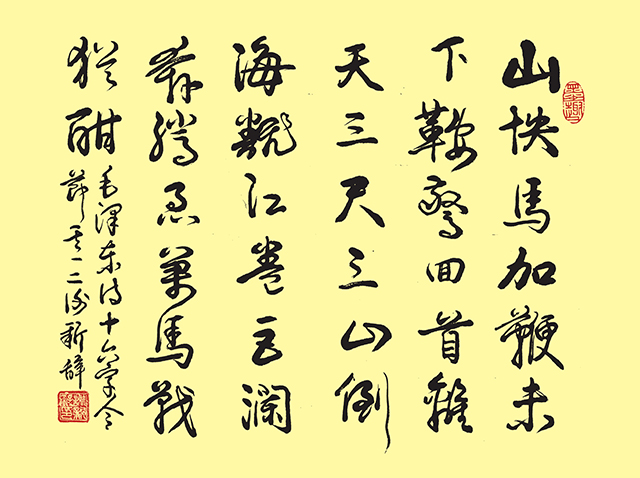 墨趣
山快馬加鞭未
下鞍驚回首離
天三尺三山倒
海翻江卷巨瀾
奔騰急萬馬戰
猶酣
毛澤東詩十六字令
節其一二